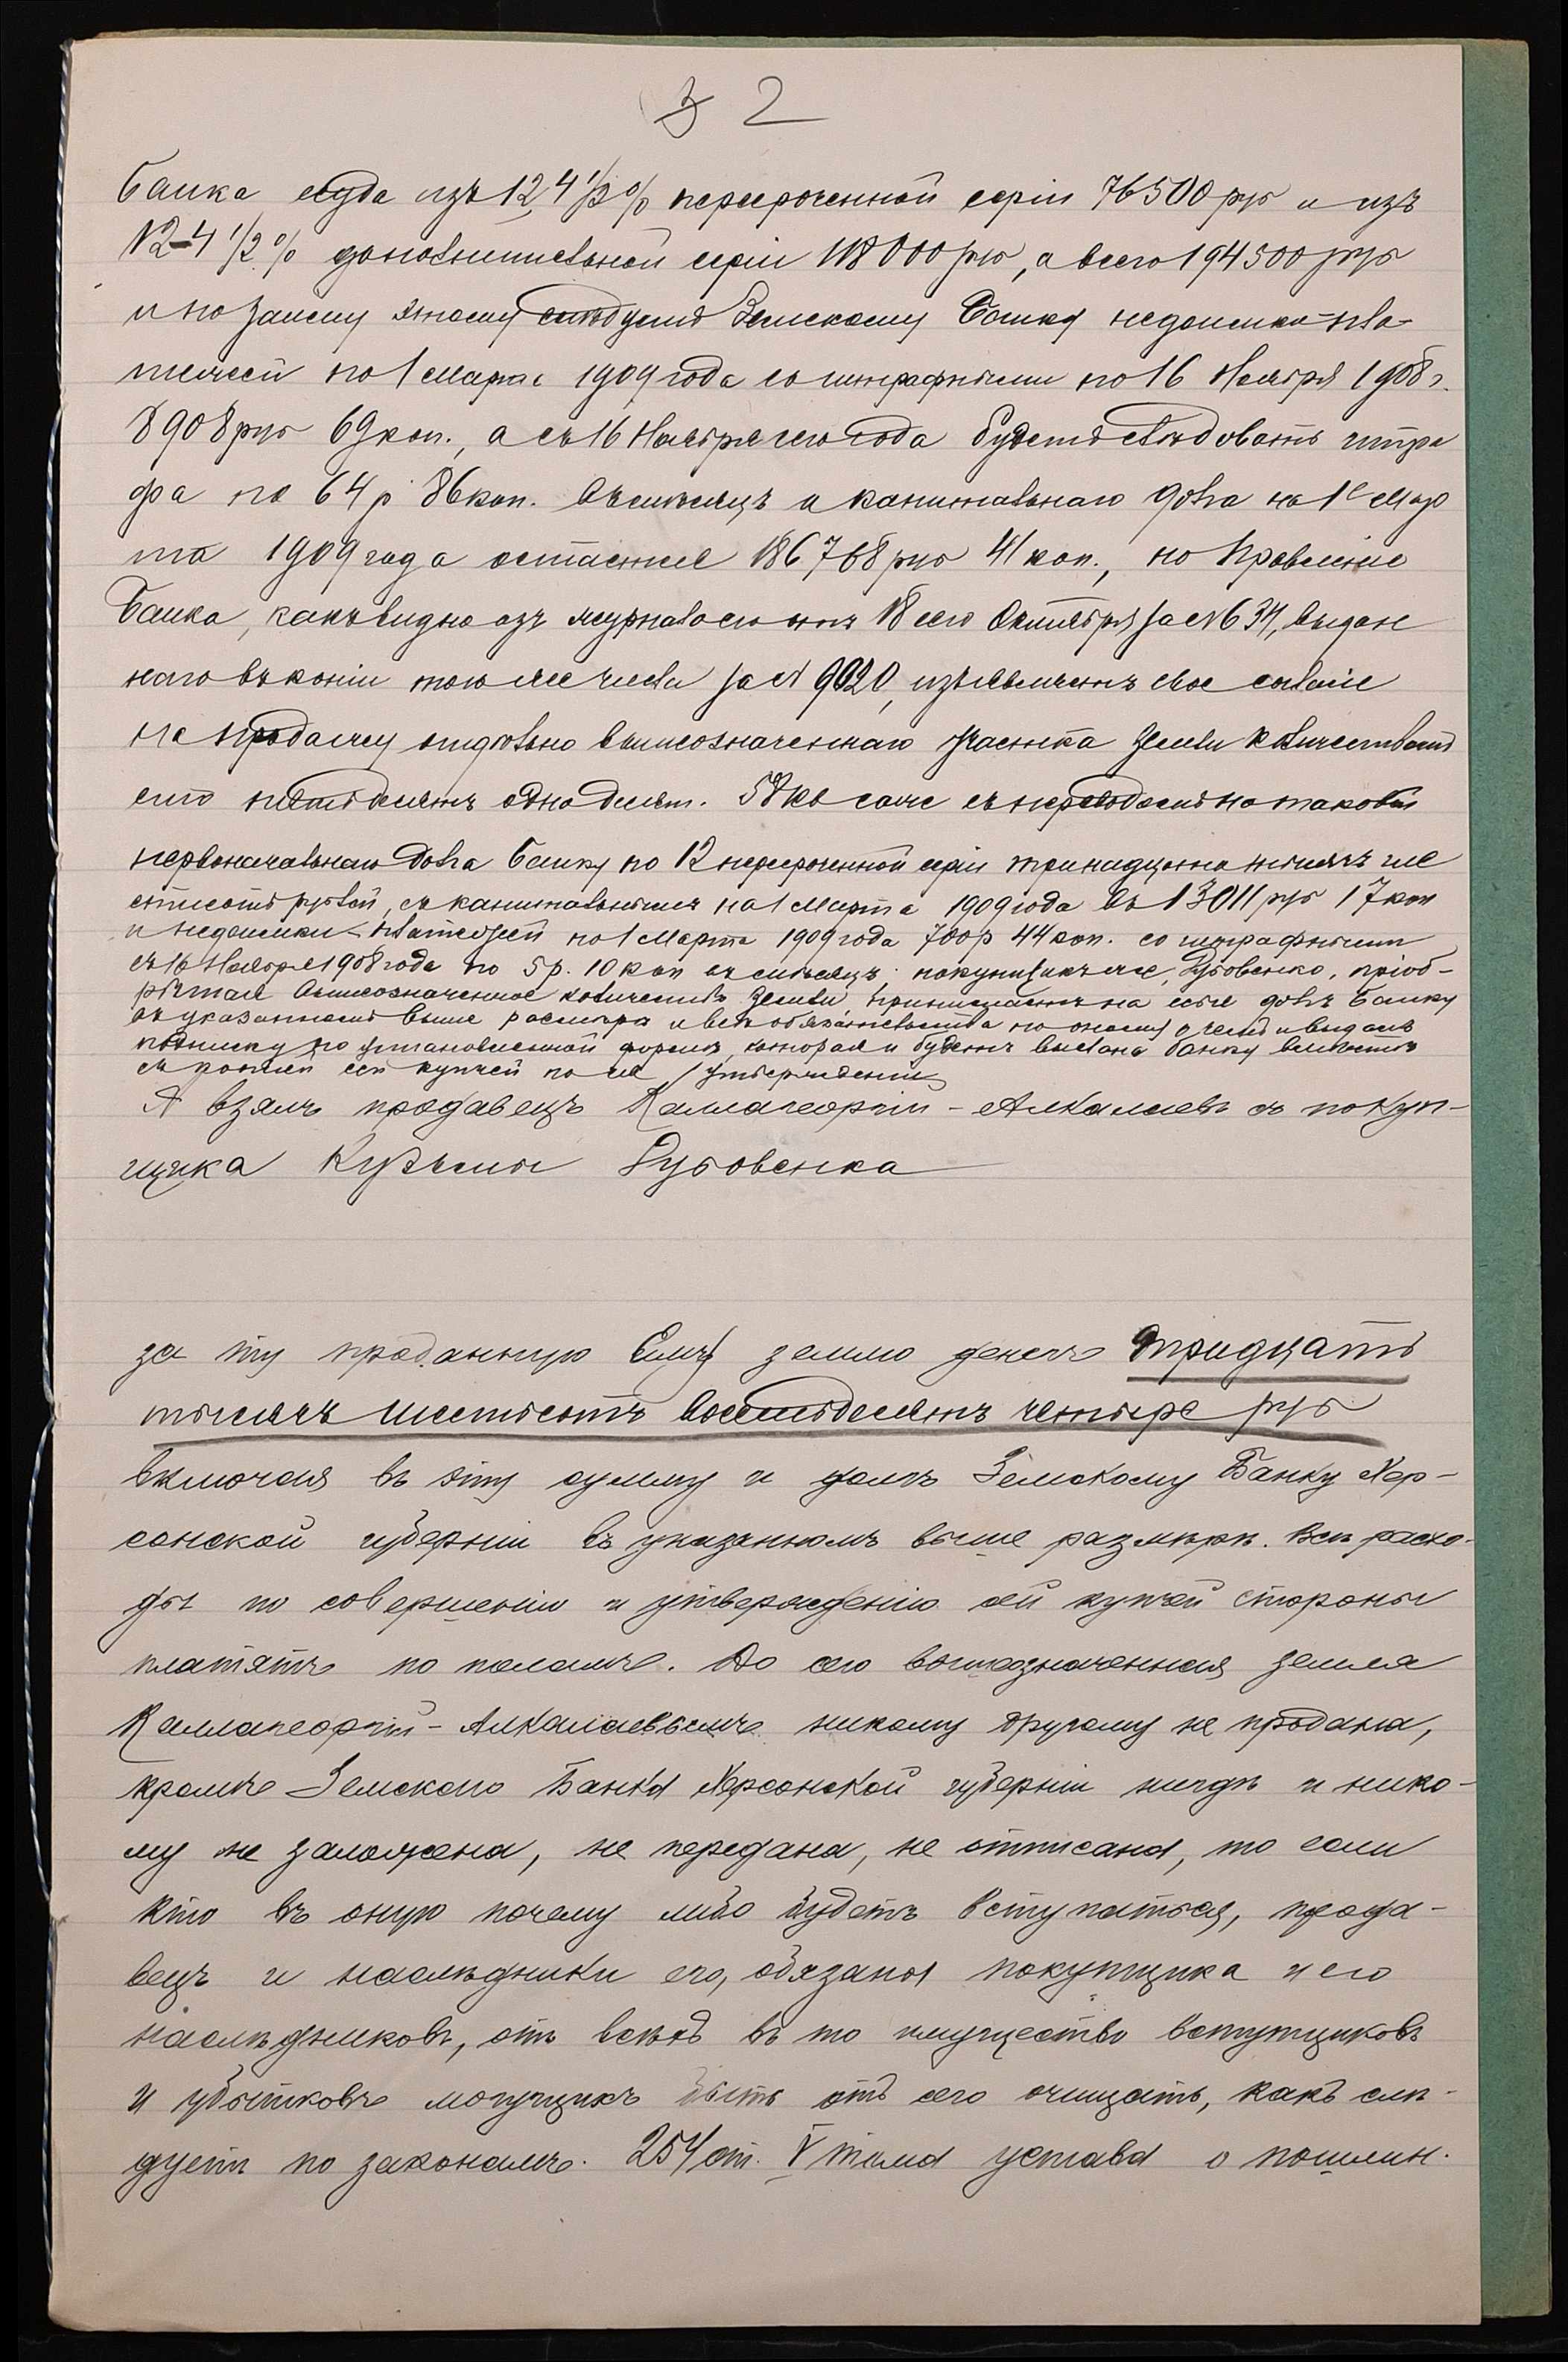 3 2
банка ссуда изъ 12, 4 1/2 % пересроченной серіи 76500 руб и изъ
12-4 1/2 % дополнительной серіи 118000 руб, а всего 194500 руб
и по займу этому слѣдуетъ Земскому Банку недоимки-пла-
тежей по 1 Марта 1909 года со штрафными по 16 Ноября 1908 г.
8908 руб 69 коп., а съ 16 Ноября сего года будетъ слѣдовать штра
фа по 64 р 86 коп. въ мѣсяцъ и капитальнаго долга на 1е Мар
та 1909 года остается 186768 руб 41 коп., но Правленіе
Банка, какъ видно изъ журнала его отъ 18 сего Октября за № 634, выдан
наго въ копіи того же числа за № 9020, изъявляетъ свое согласіе
на продажу отдѣльно вышеозначеннаго участка земли количествомъ
сто пятьдесятъ одна десят. 58 кв саж съ переводомъ на таковой
первоначальнаго долга Банку по 12 пересроченной серіи тринадцати тысячъ ше
стисотъ рублей, съ капитальнымъ на 1 Марта 1909 года въ 13011 руб 17 коп
и недоимки-платежей по 1 Марта 1909 года 700 р 44 коп. со штрафными
съ 16 Ноября 1908 года по 5 р. 10 коп въ мѣсяцъ; покупщикъ же, Дубовенко, пріоб-
рѣтая вышеозначенное количество земли принимаетъ на себя долгъ Банку
въ указанномъ выше размѣрѣ и всѣ обязательства по оному о чемъ и выдалъ
подписку по установленной формѣ, которая и будетъ выслана Банку вмѣстѣ
съ копіей сей купчей по ея утвержденіи
А взялъ продавецъ Каллагеоргій-Алкалаевъ съ покуп-
щика Кузьмы Дубовенка
за ту проданную ему землю денегъ тридцать
тысячъ шестьсотъ восемьдесятъ четыре руб
включая въ эту сумму и долгъ Земскому Банку Хер-
сонской губерніи въ указанномъ выше размѣрѣ. Всѣ расхо-
ды по совершенію и утвержденію сей купчей стороны
платятъ по поламъ. До сего вышеозначенная земля
Каллагеоргій-Алкалаевымъ никому другому не продана,
кромѣ Земскаго Банка Херсонской губерніи нигдѣ и нико-
му не заложена, не передана, не отписана, то если
кто въ оную почему либо будетъ вступаться, прода-
вецъ и наслѣдники его, обязаны покупщика и его
наслѣдниковъ, отъ всѣхъ въ то имущество вступщиковъ
и убытковъ могущихъ быть отъ сего очищать, какъ слѣ-
дуетъ по законамъ. 254 ст. V тома устава о пошлин.